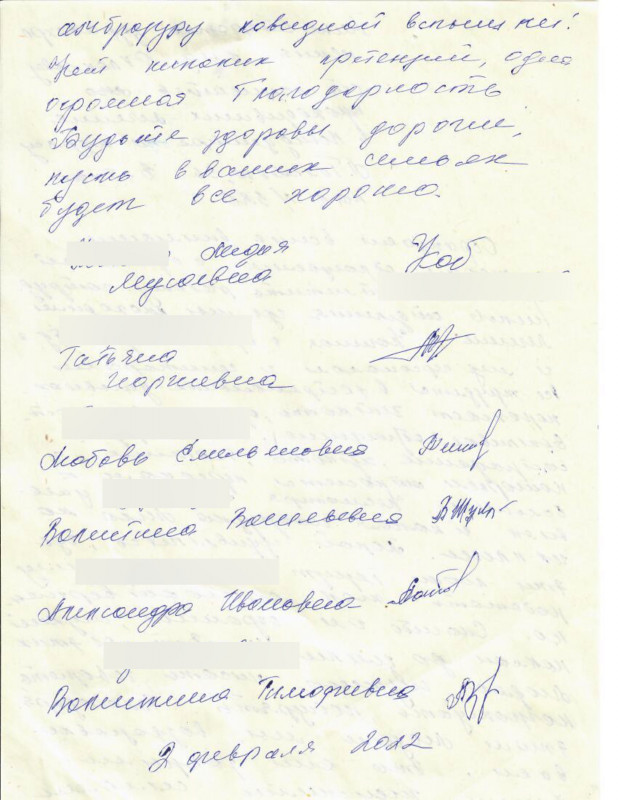 амбразуру ковидной вспышки!
Нет никаких претензий, одна
огромная благодарность
Будьте здоровы дорогие,
пусть в ваших семьях
будет все хорошо.
Лидия
Мусаевна
Татьяна
Георгиевна
Любовь Емельяновна
Валентина Васильевна
Александра Ивановна
Валентина Тимофеевна
2 февраля 2022